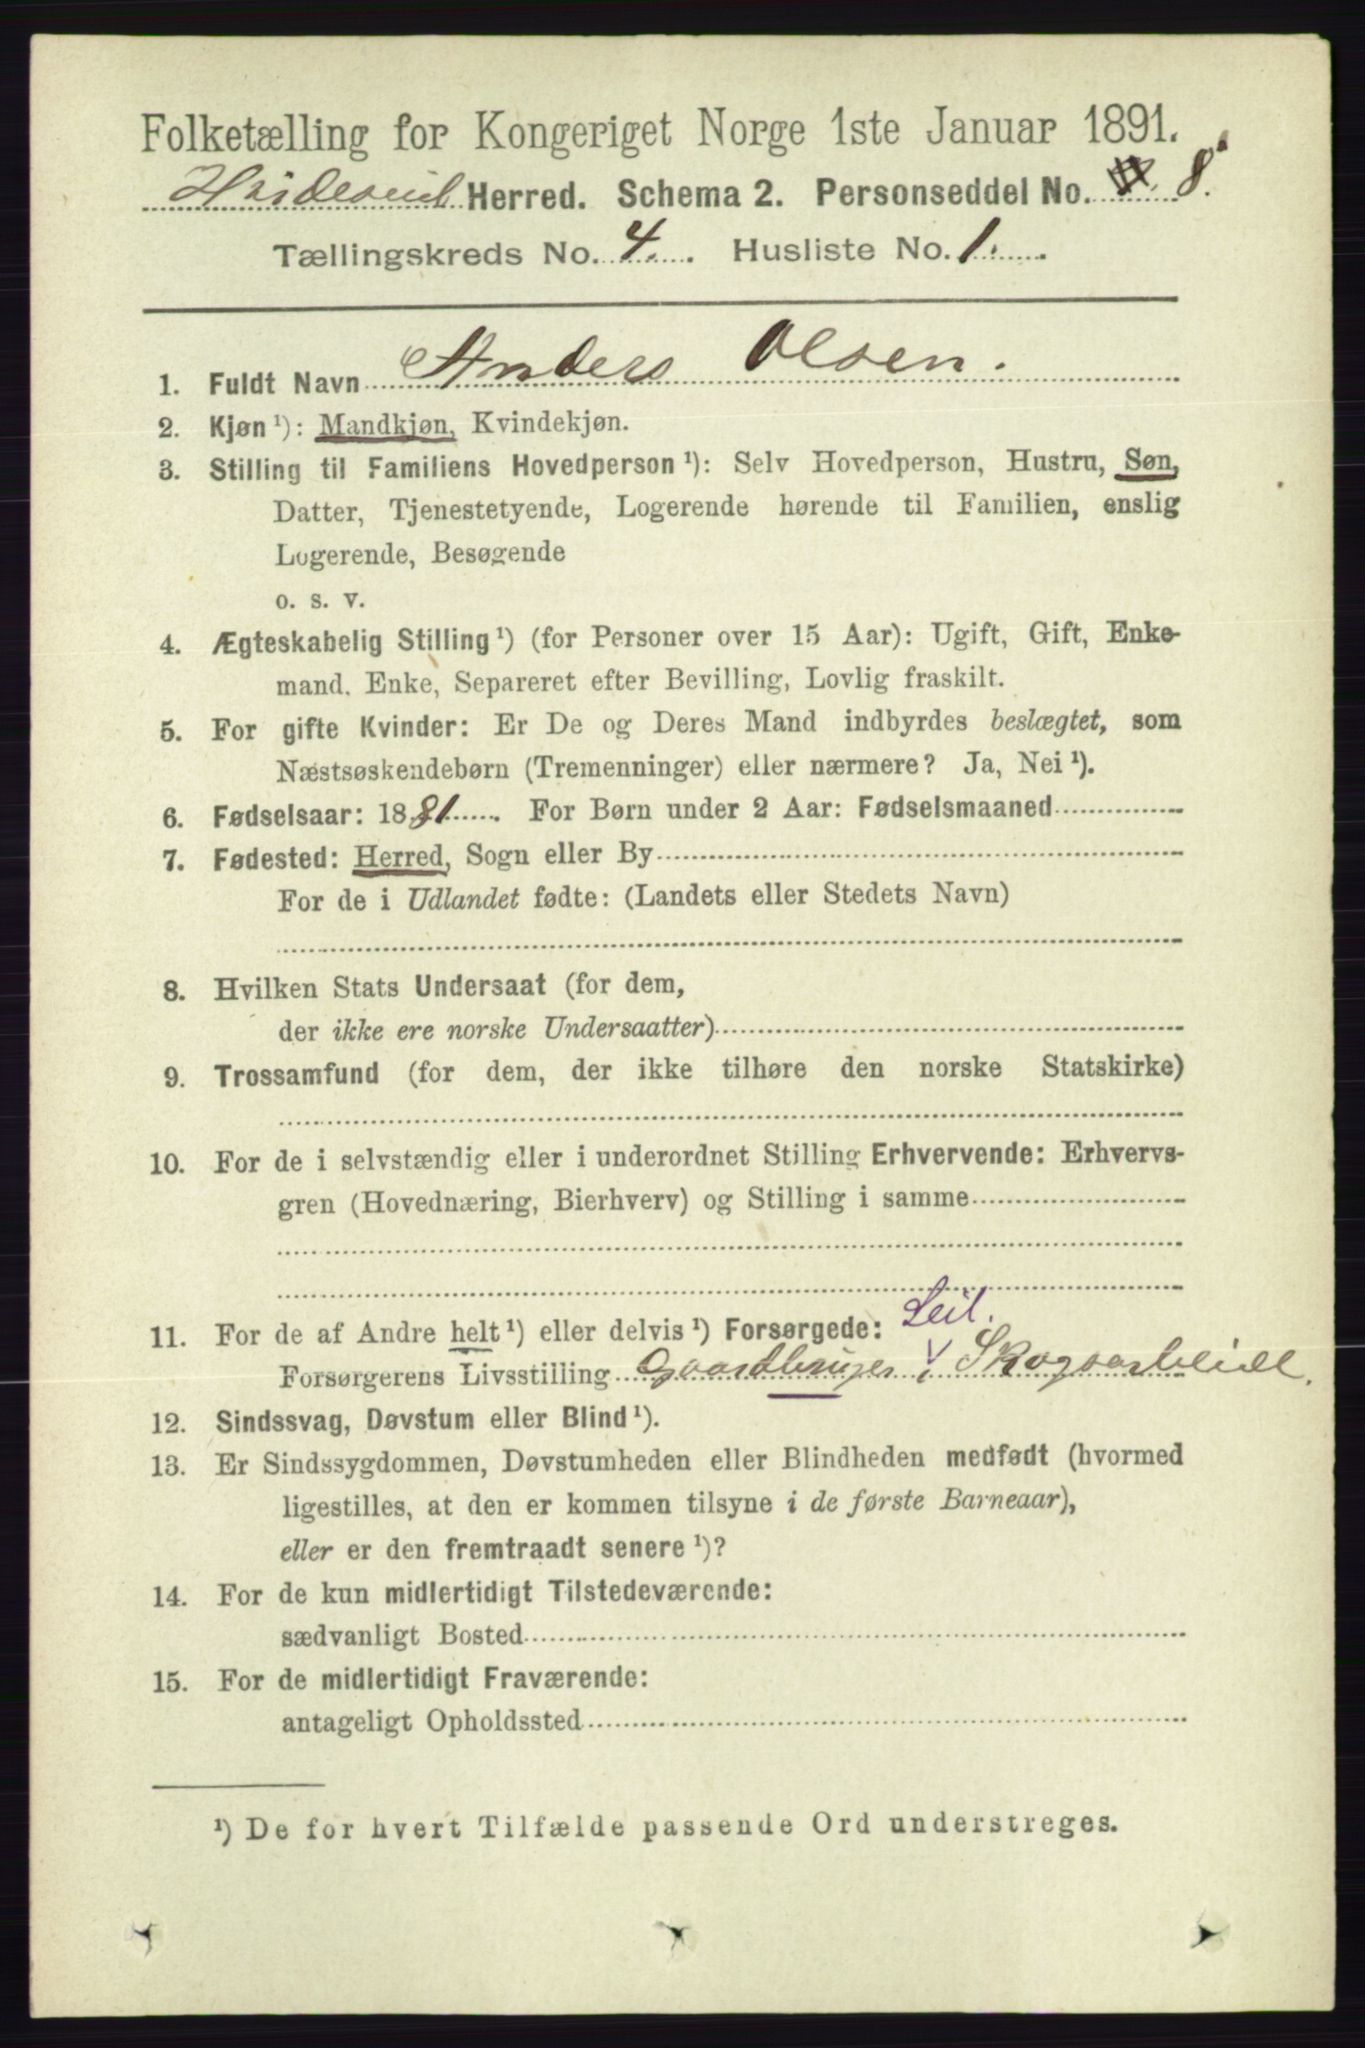 Folketælling for Kongeriget Norge 1ste Januar 1891.
Hvideseid Herred. Schema 2. Personseddel No. 8.
Tællingskreds No. 4. Husliste No. 1.
1. Fuldt Navn Anders Olsen.
2. Kjøn ¹): Mandkjøn, Kvindekjøn.
3. Stilling til Familiens Hovedperson ¹): Selv Hovedperson, Hustru, Søn,
Datter, Tjenestetyende, Logerende hørende til Familien, enslig
Logerende, Besøgende
o. s. v.
4. Ægteskabelig Stilling ¹) (for Personer over 15 Aar): Ugift, Gift, Enke-
mand, Enke, Separeret efter Bevilling, Lovlig fraskilt.
5. For gifte Kvinder: Er De og Deres Mand indbyrdes beslægtet, som
Næstsøskendebørn (Tremenninger) eller nærmere? Ja, Nei ¹).
6. Fødselsaar: 1881. For Børn under 2 Aar: Fødselsmaaned
7. Fødested: Herred, Sogn eller By
For de i Udlandet fødte: (Landets eller Stedets Navn)
8. Hvilken Stats Undersaat (for dem,
der ikke ere norske Undersaatter)
9. Trossamfund (for dem, der ikke tilhøre den norske Statskirke)
10. For de i selvstændig eller i underordnet Stilling Erhvervende: Erhvervs-
gren (Hovednæring, Bierhverv) og Stilling i samme
Leil.
11. For de af Andre helt ¹) eller delvis ¹) Forsørgede:
Forsørgerens Livsstilling Gaardbruger, Skogsarbeide.
12. Sindssvag, Døvstum eller Blind ¹).
13. Er Sindssygdommen, Døvstumheden eller Blindheden medfødt (hvormed
ligestilles, at den er kommen tilsyne i de første Barneaar),
eller er den fremtraadt senere ¹)?
14. For de kun midlertidigt Tilstedeværende:
sædvanligt Bosted
15. For de midlertidigt Fraværende:
antageligt Opholdssted
¹) De for hvert Tilfælde passende Ord understreges.